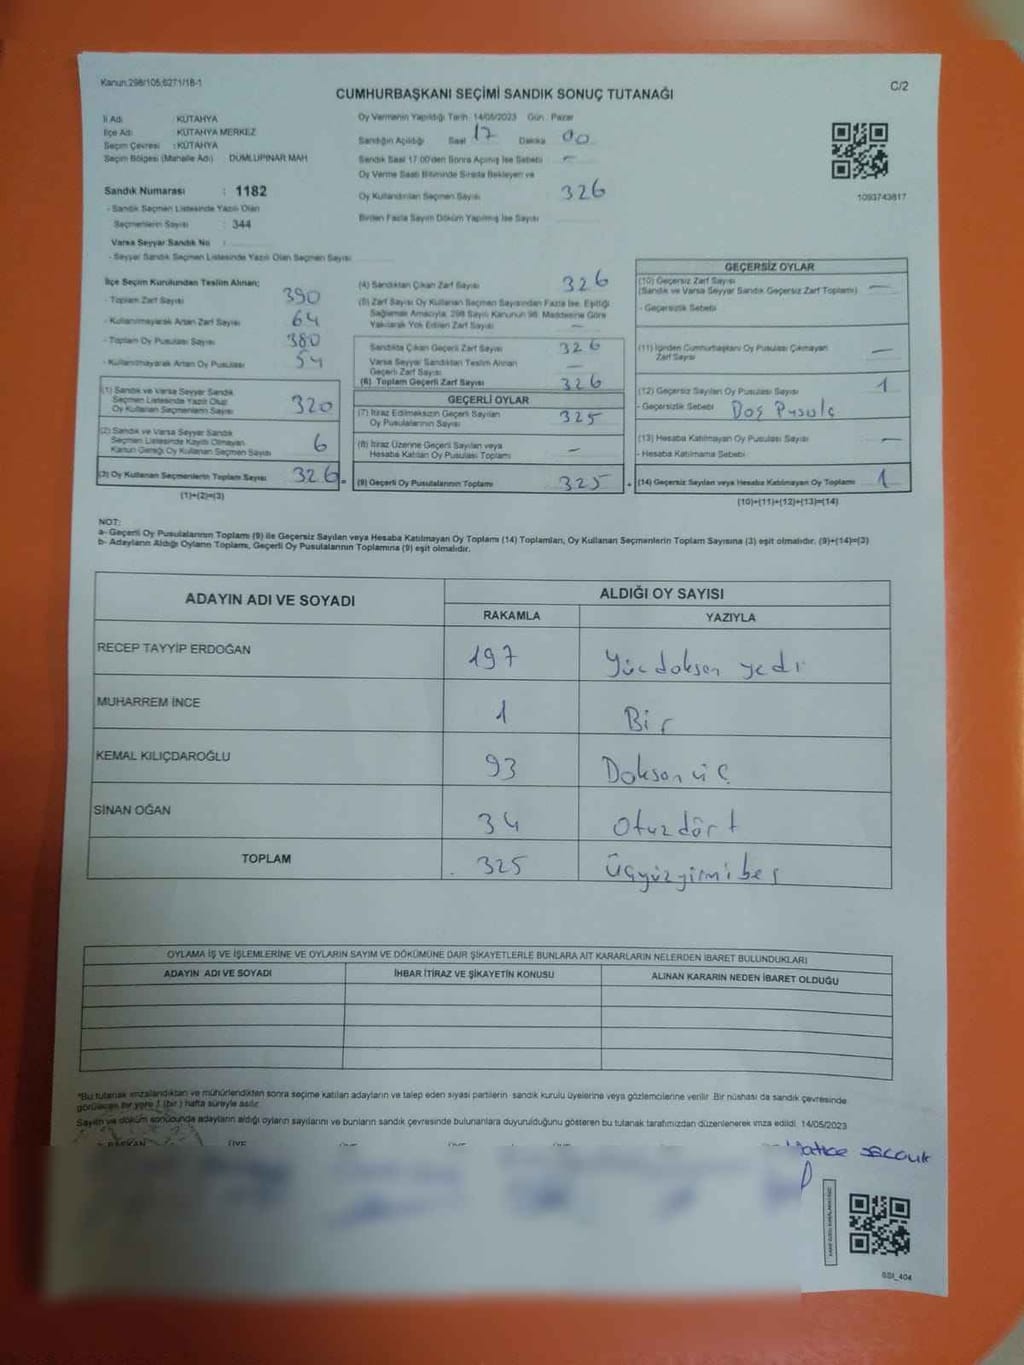 Kanun:298/105,6271/18-1
C/2
CUMHURBAŞKANI SEÇİMİ SANDIK SONUÇ TUTANAĞI
İl Adı : KÜTAHYA
İlçe Adı : KÜTAHYA MERKEZ
Seçim Çevresi : KÜTAHYA
Seçim Bölgesi (Mahalle Adı) : DUMLUPINAR MAH
Sandık Numarası : 1182
- Sandık Seçmen Listesinde Yazılı Olan
Seçmenlerin Sayısı : 344
Varsa Seyyar Sandık No :
- Seyyar Sandık Seçmen Listesinde Yazılı Olan Seçmen Sayısı
Oy Vermenin Yapıldığı Tarih :14/05/2023 Gün : Pazar
Sandığın Açıldığı Saat 17 Dakika 00
Sandık Saat 17.00'den Sonra Açılmış İse Sebebi –
Oy Verme Saati Bitiminde Sırada Bekleyen ve
Oy Kullandırılan Seçmen Sayısı 326
Birden Fazla Sayım Döküm Yapılmış İse Sayısı
1093743817
İlçe Seçim Kurulundan Teslim Alınan;
- Toplam Zarf Sayısı 390
- Kullanılmayarak Artan Zarf Sayısı 64
- Toplam Oy Pusulası Sayısı 380
- Kullanılmayarak Artan Oy Pusulası 54
(1) Sandık ve Varsa Seyyar Sandık
Seçmen Listesinde Yazılı Olup
Oy Kullanan Seçmenlerin Sayısı 320
(2) Sandık ve Varsa Seyyar Sandık
Seçmen Listesinde Kayıtlı Olmayan
Kanun Gereği Oy Kullanan Seçmen Sayısı 6
(3) Oy Kullanan Seçmenlerin Toplam Sayısı 326
(1)+(2)=(3)
(4) Sandıktan Çıkan Zarf Sayısı 326
(5) Zarf Sayısı Oy Kullanan Seçmen Sayısından Fazla İse, Eşitliği
Sağlamak Amacıyla, 298 Sayılı Kanunun 98. Maddesine Göre
Yakılarak Yok Edilen Zarf Sayısı –
Sandıkta Çıkan Geçerli Zarf Sayısı 326
Varsa Seyyar Sandıktan Teslim Alınan
Geçerli Zarf Sayısı –
(6) Toplam Geçerli Zarf Sayısı 326
GEÇERLİ OYLAR
(7) İtiraz Edilmeksizin Geçerli Sayılan
Oy Pusulalarının Sayısı 325
(8) İtiraz Üzerine Geçerli Sayılan veya
Hesaba Katılan Oy Pusulası Toplamı –
(9) Geçerli Oy Pusulalarının Toplamı 325
GEÇERSİZ OYLAR
(10) Geçersiz Zarf Sayısı
(Sandık ve Varsa Seyyar Sandık Geçersiz Zarf Toplamı) –
- Geçersizlik Sebebi
(11) İçinden Cumhurbaşkanı Oy Pusulası Çıkmayan
Zarf Sayısı –
(12) Geçersiz Sayılan Oy Pusulası Sayısı 1
- Geçersizlik Sebebi Boş Pusula
(13) Hesaba Katılmayan Oy Pusulası Sayısı –
- Hesaba Katılmama Sebebi
(14) Geçersiz Sayılan veya Hesaba Katılmayan Oy Toplamı 1
(10)+(11)+(12)+(13)=(14)
NOT:
a- Geçerli Oy Pusulalarının Toplamı (9) ile Geçersiz Sayılan veya Hesaba Katılmayan Oy Toplamı (14) Toplamları, Oy Kullanan Seçmenlerin Toplam Sayısına (3) eşit olmalıdır. (9)+(14)=(3)
b- Adayların Aldığı Oyların Toplamı, Geçerli Oy Pusulalarının Toplamına (9) eşit olmalıdır.
ADAYIN ADI VE SOYADI
ALDIĞI OY SAYISI
RAKAMLA YAZIYLA
RECEP TAYYİP ERDOĞAN 197 Yüzdoksan yedi
MUHARREM İNCE 1 Bir
KEMAL KILIÇDAROĞLU 93 Doksan üç
SİNAN OĞAN 34 Otuzdört
TOPLAM 325 Üçyüzyirmibeş
OYLAMA İŞ VE İŞLEMLERİNE VE OYLARIN SAYIM VE DÖKÜMÜNE DAİR ŞİKAYETLERLE BUNLARA AİT KARARLARIN NELERDEN İBARET BULUNDUKLARI
ADAYIN ADI VE SOYADI İHBAR İTİRAZ VE ŞİKAYETİN KONUSU ALINAN KARARIN NEDEN İBARET OLDUĞU
*Bu tutanak imzalandıktan ve mühürlendikten sonra seçime katılan adayların ve talep eden siyasi partilerin sandık kurulu üyelerine veya gözlemcilerine verilir. Bir nüshası da sandık çevresinde
görülecek bir yere 1 (bir ) hafta süreyle asılır.
Sayım ve döküm sonucunda adayların aldığı oyların sayılarını ve bunların sandık çevresinde bulunanlara duyurulduğunu gösteren bu tutanak tarafımızdan düzenlenerek imza edildi. 14/05/2023
BAŞKAN ÜYE
SSt_404